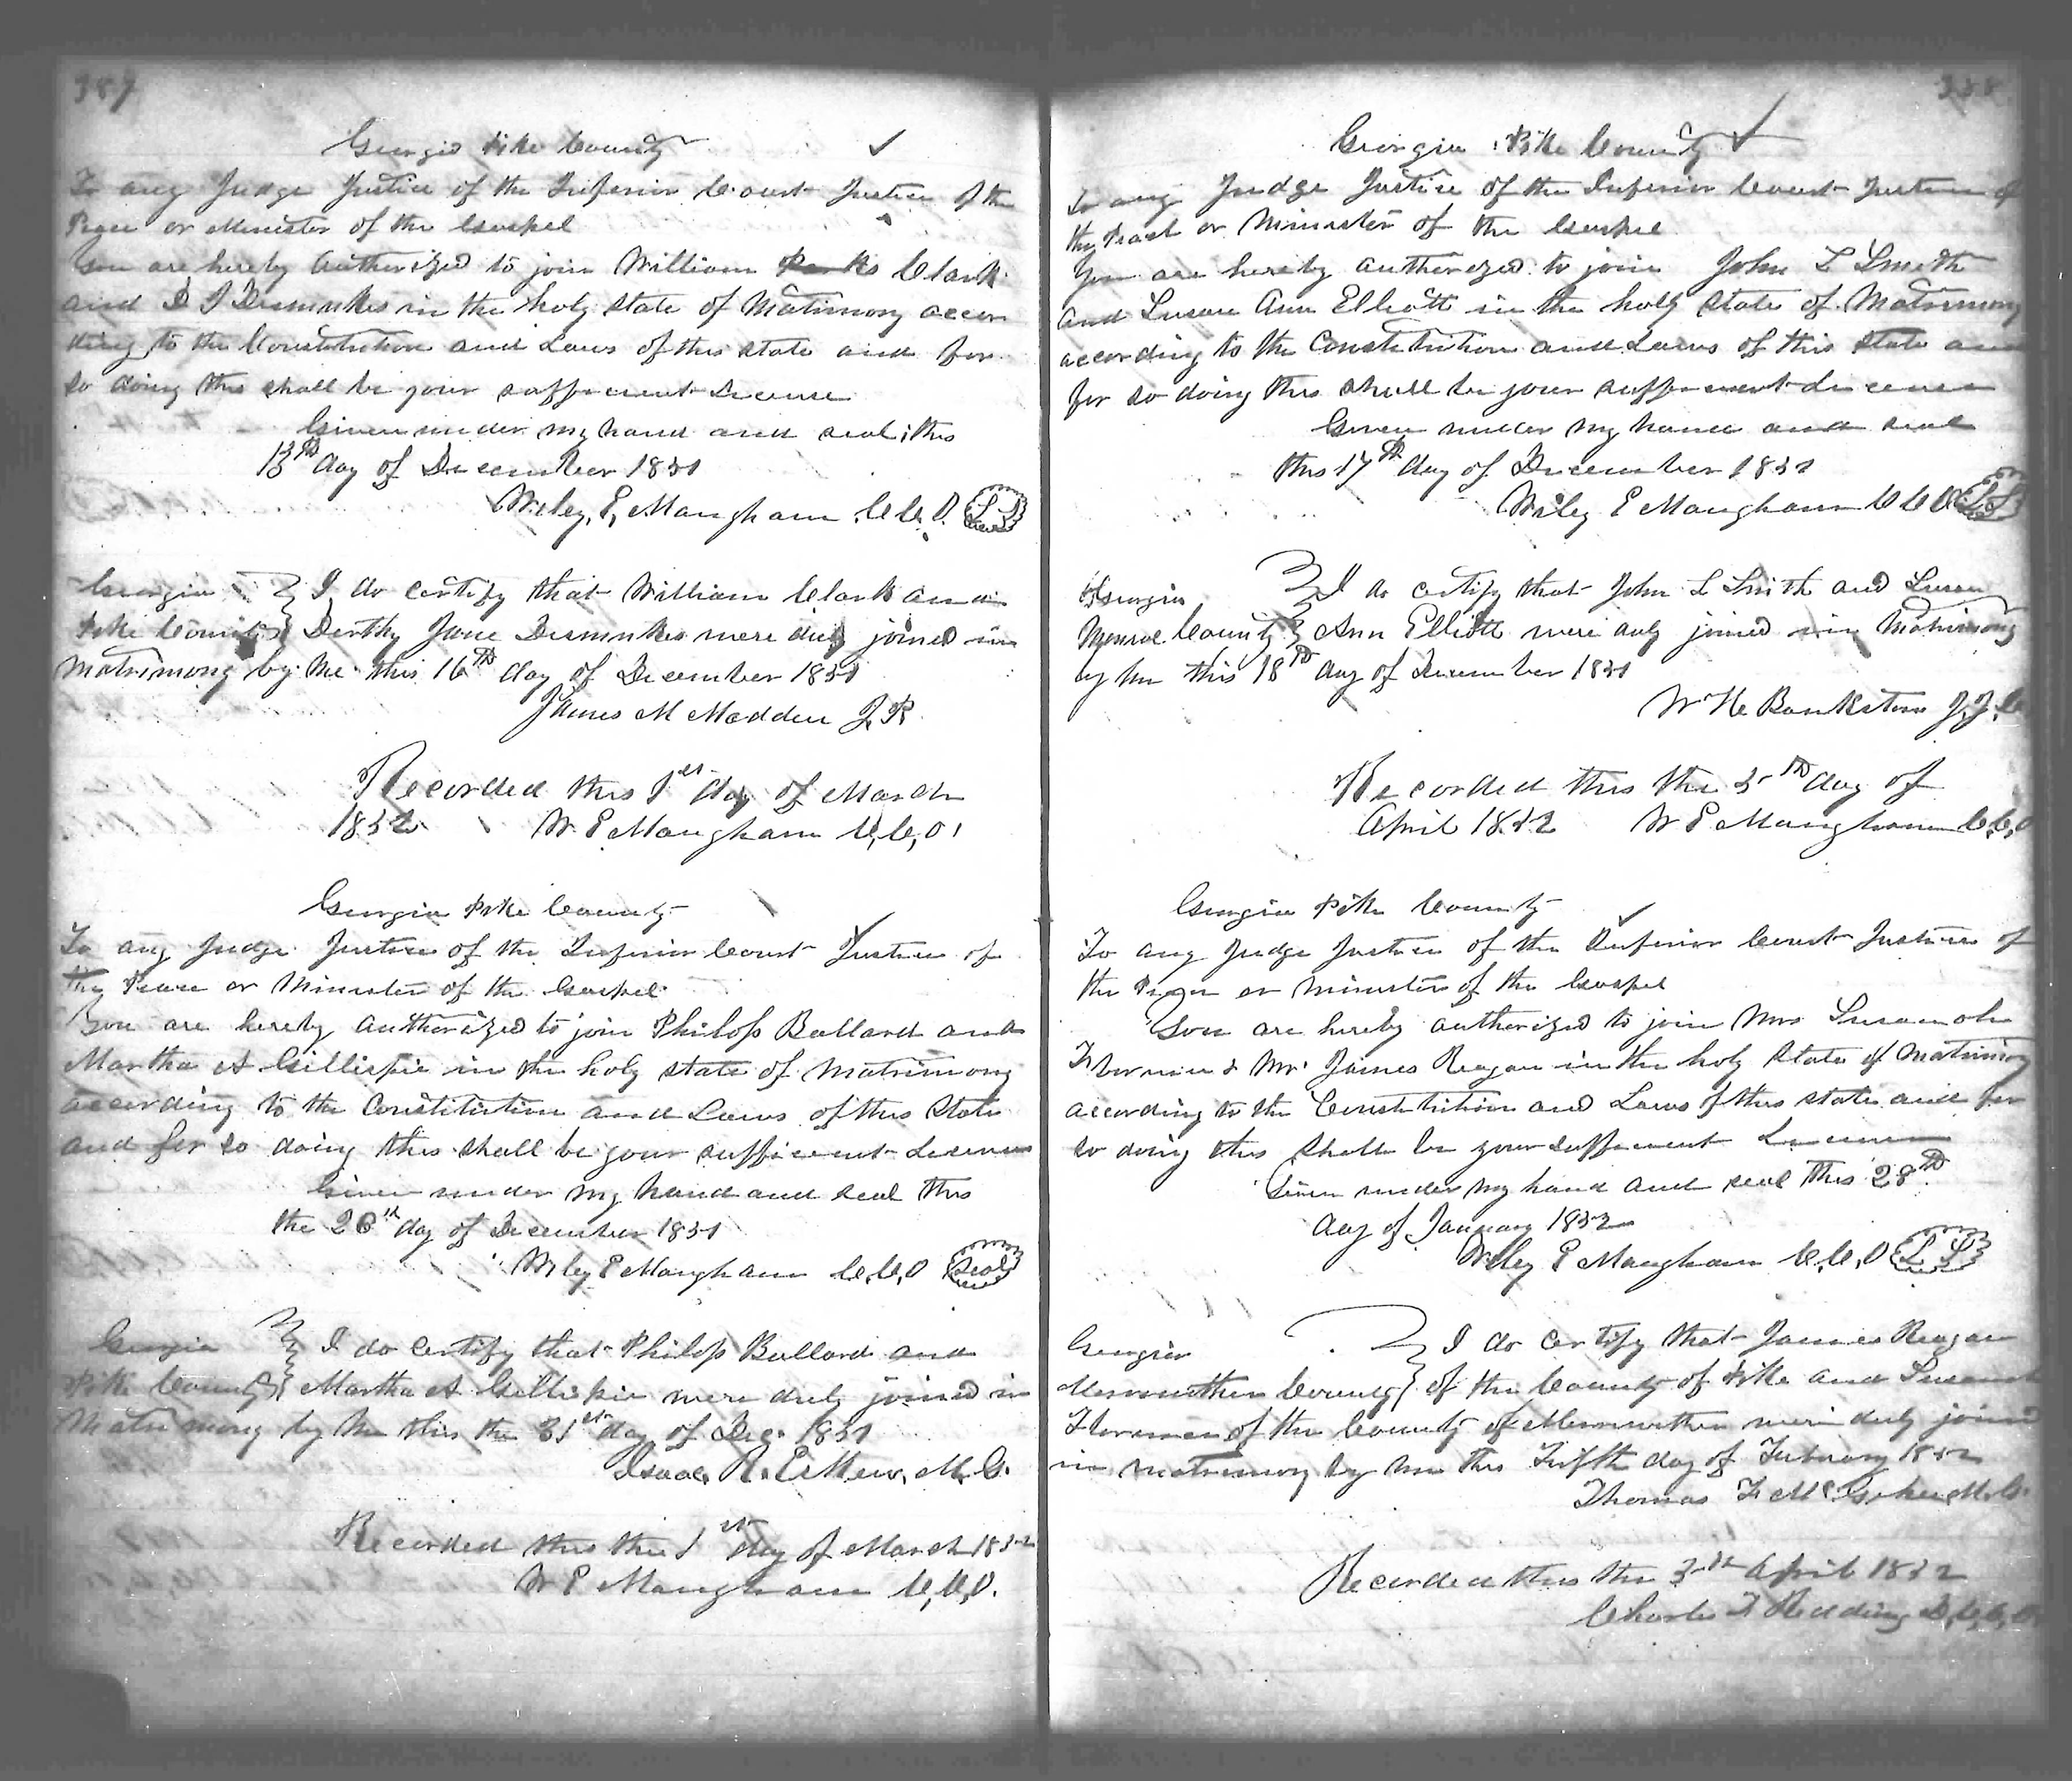 387
Georgia Pike County
To any Judge Justice of the Inferior Court Justice of the
Peace or Minister of the Gospel
You are hereby Authorized to join William Parks Clark
and D J Dismukes in the holy state of Matrimony accor
ding to the Constitution and Laws of this state and for
so doing this shall be your sufficient License
Given under my hand and seal this
13th day of December 1831
Wiley E Mangham C.C.O. L S
Georgia I do certify that William Clark and
Pike County Derthy Jane Dismukes were duly joined in
Matrimony by Me this 16th day of December 1831
James M Madden J.P.
Recorded this 1st day of March
1832 W E Mangham C,C,O,
Georgia Pike County
To any Judge Justice of the Inferior Court Justice of
the Peace or Minister of the Gospel
You are hereby authorized to join Philop Ballard and
Martha A Gillispie in the holy state of Matrimony
according to the Constitution and Laws of this State
and for so doing this shall be your sufficient License
Given under my hand and seal this
the 26th day of December 1831
Wiley E Mangham C.C.O Seal
Georgia I do certify that Philop Ballard and
Pike County Martha A Gillispie were duly joined in
Matrimony by Me this the 31st day of Dec. 1831
Isaac R. Eskew, M.G.
Recorded this the 1st day of March 1832
W E Mangham C,C,O.
388
Georgia Pike County
To any Judge Justice of the Inferior Court Justice of
the Peace or Minister of the Gospel
You are hereby authorized to join John L Smith
and Susan Ann Elliott in the holy state of Matrimony
according to the Constitution and Laws of this state and
for so doing this shall be your sufficient License
Given under my hand and seal
this 17th day of December 1831
Wiley E Mangham C C O L S
Georgia I do certify that John L Smith and Susan
Monroe County Ann Elliott were duly joined in Matrimony
by me this 18th day of December 1831
W H Bankston J.J.C
Recorded this the 3rd day of
April 1832 W E Mangham C.C,O
Georgia Pike County
To any Judge Justice of the Inferior Court Justice of
the Peace or Minister of the Gospel
You are hereby authorized to join Mrs Susannah
& Mr. James Reagan in the holy state of Matrimony
according to the Constitution and Laws of this state and for
so doing this shall be your sufficient License
Given under my hand and seal this 28th
day of January 1832
Wiley E Mangham C.C.O L S
Georgia I do certify that James Reagan
Merriwether County of the County of Pike and Susannah
of the County of Merriwether were duly joined
in matrimony by me this Fifth day of February 1832
Thomas M.G.
Recorded this the 3rd April 1832
Charles F Redding D,C,C,O